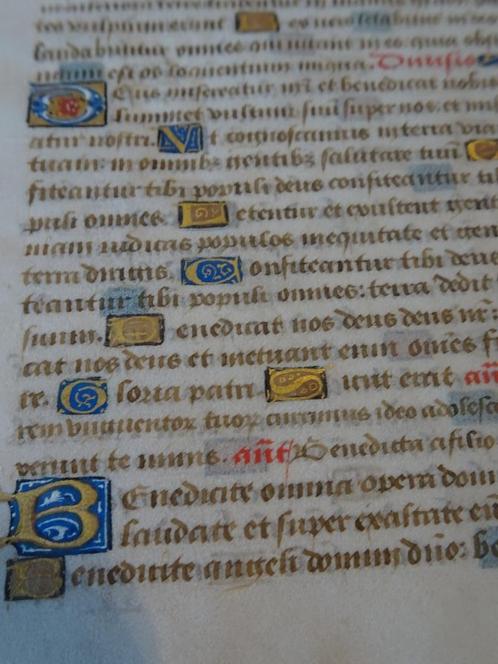 laudabuntur omnes qui iurant in eo. quia obst
um est os loquentium iniqua. Divisio
Deus misereatur nr̄i et benedicat nobis
illuminet vultum suū super nos. et mi
atur nostri. Ut cognoscamus in terra viā
tuam: in omnibꝫ gentibꝫ salutare tuū
fiteantur tibi populi deus confiteantur tibi
puli omnes. Letentur et exultent gent
niam iudicas populos in equitate et gen
terra dirigis. Confiteantur tibi deus
teantur tibi populi omnes: terra dedit
suum. Benedicat nos deus deus nr̄:
cat nos deus et metuant eum omēs f
re. Gloria patri Sicut erit an̄
rem unguentoꝝ tuoꝝ currimus ideo adolesc
verunt te nimis. an̄t Benedicta a filio
Benedicite omnia opera domi
laudate et super exaltate eū
Benedicite angeli domini dn̄o: be